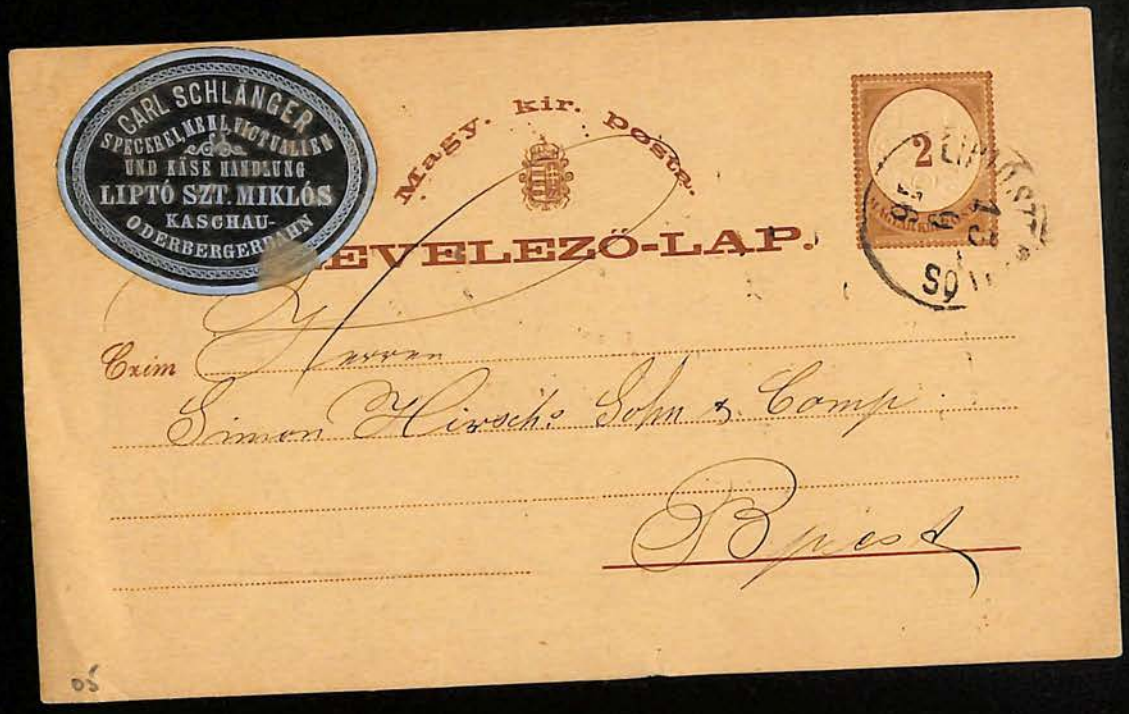 CARL SCHLÄNGER
SPECEREI, MEHL, VICTUALIEN
UND KÄSE HANDLUNG
LIPTÓ SZT. MIKLÓS
KASCHAU-
ODERBERGERBAHN
Magy. kir. posta.
2
LEVELEZŐ-LAP.
Czim Herren
Simon Hirsch: Sohn & Comp.
Bpest
05